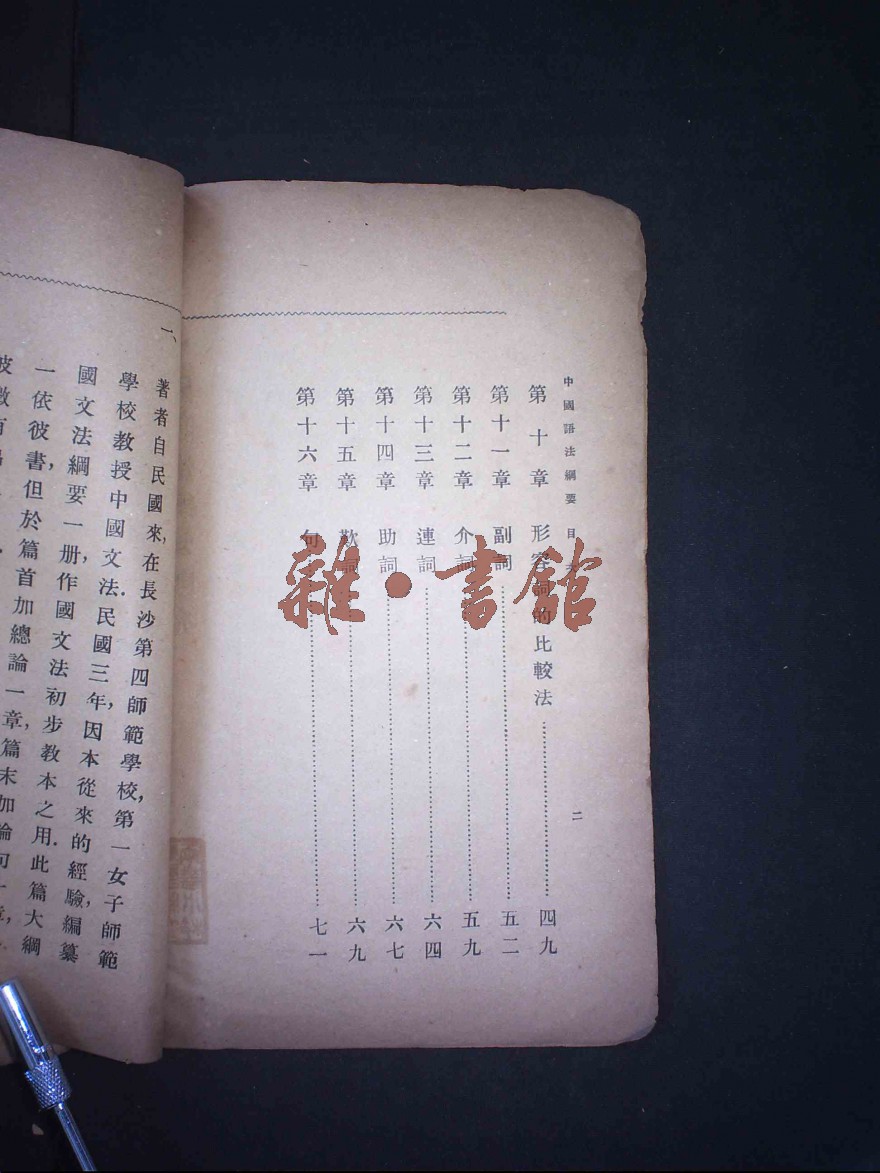 中國語法綱要 目次
二
第十章 形容詞的比較法 四九
第十一章 副詞 五二
第十二章 介詞 五九
第十三章 連詞 六四
第十四章 助詞 六七
第十五章 歎詞 六九
第十六章 句 七一
雜·書館
一、著者自民國來,在長沙第四師範學校,第一女子師範
學校教授中國文法.民國三年,因本從來的經驗,編纂
國文法綱要一册,作國文法初步教本之用.此篇大綱
一依彼書,但於篇首加總論一章,篇末加論句一章,